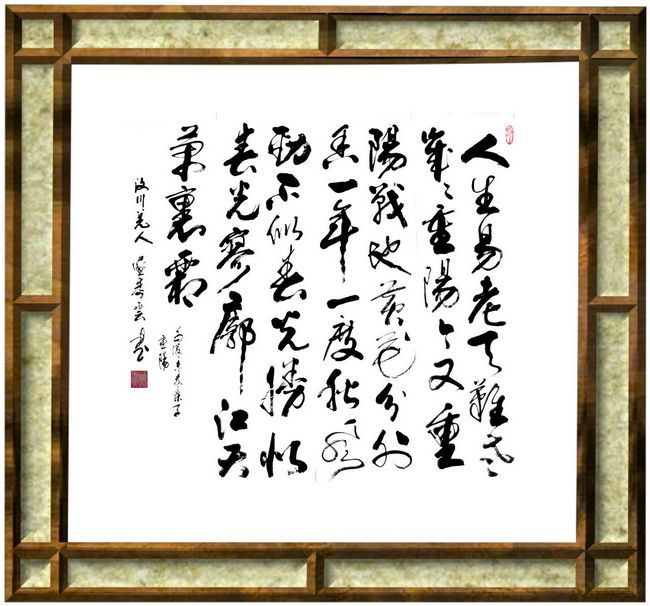 人生易老天難老
歲々重陽今又重
陽戰地黃花分外
香一年一度秋風
勁不似春光勝似
春光寥廓江天
萬裏霜
采桑子
重陽
汶川羌人 書